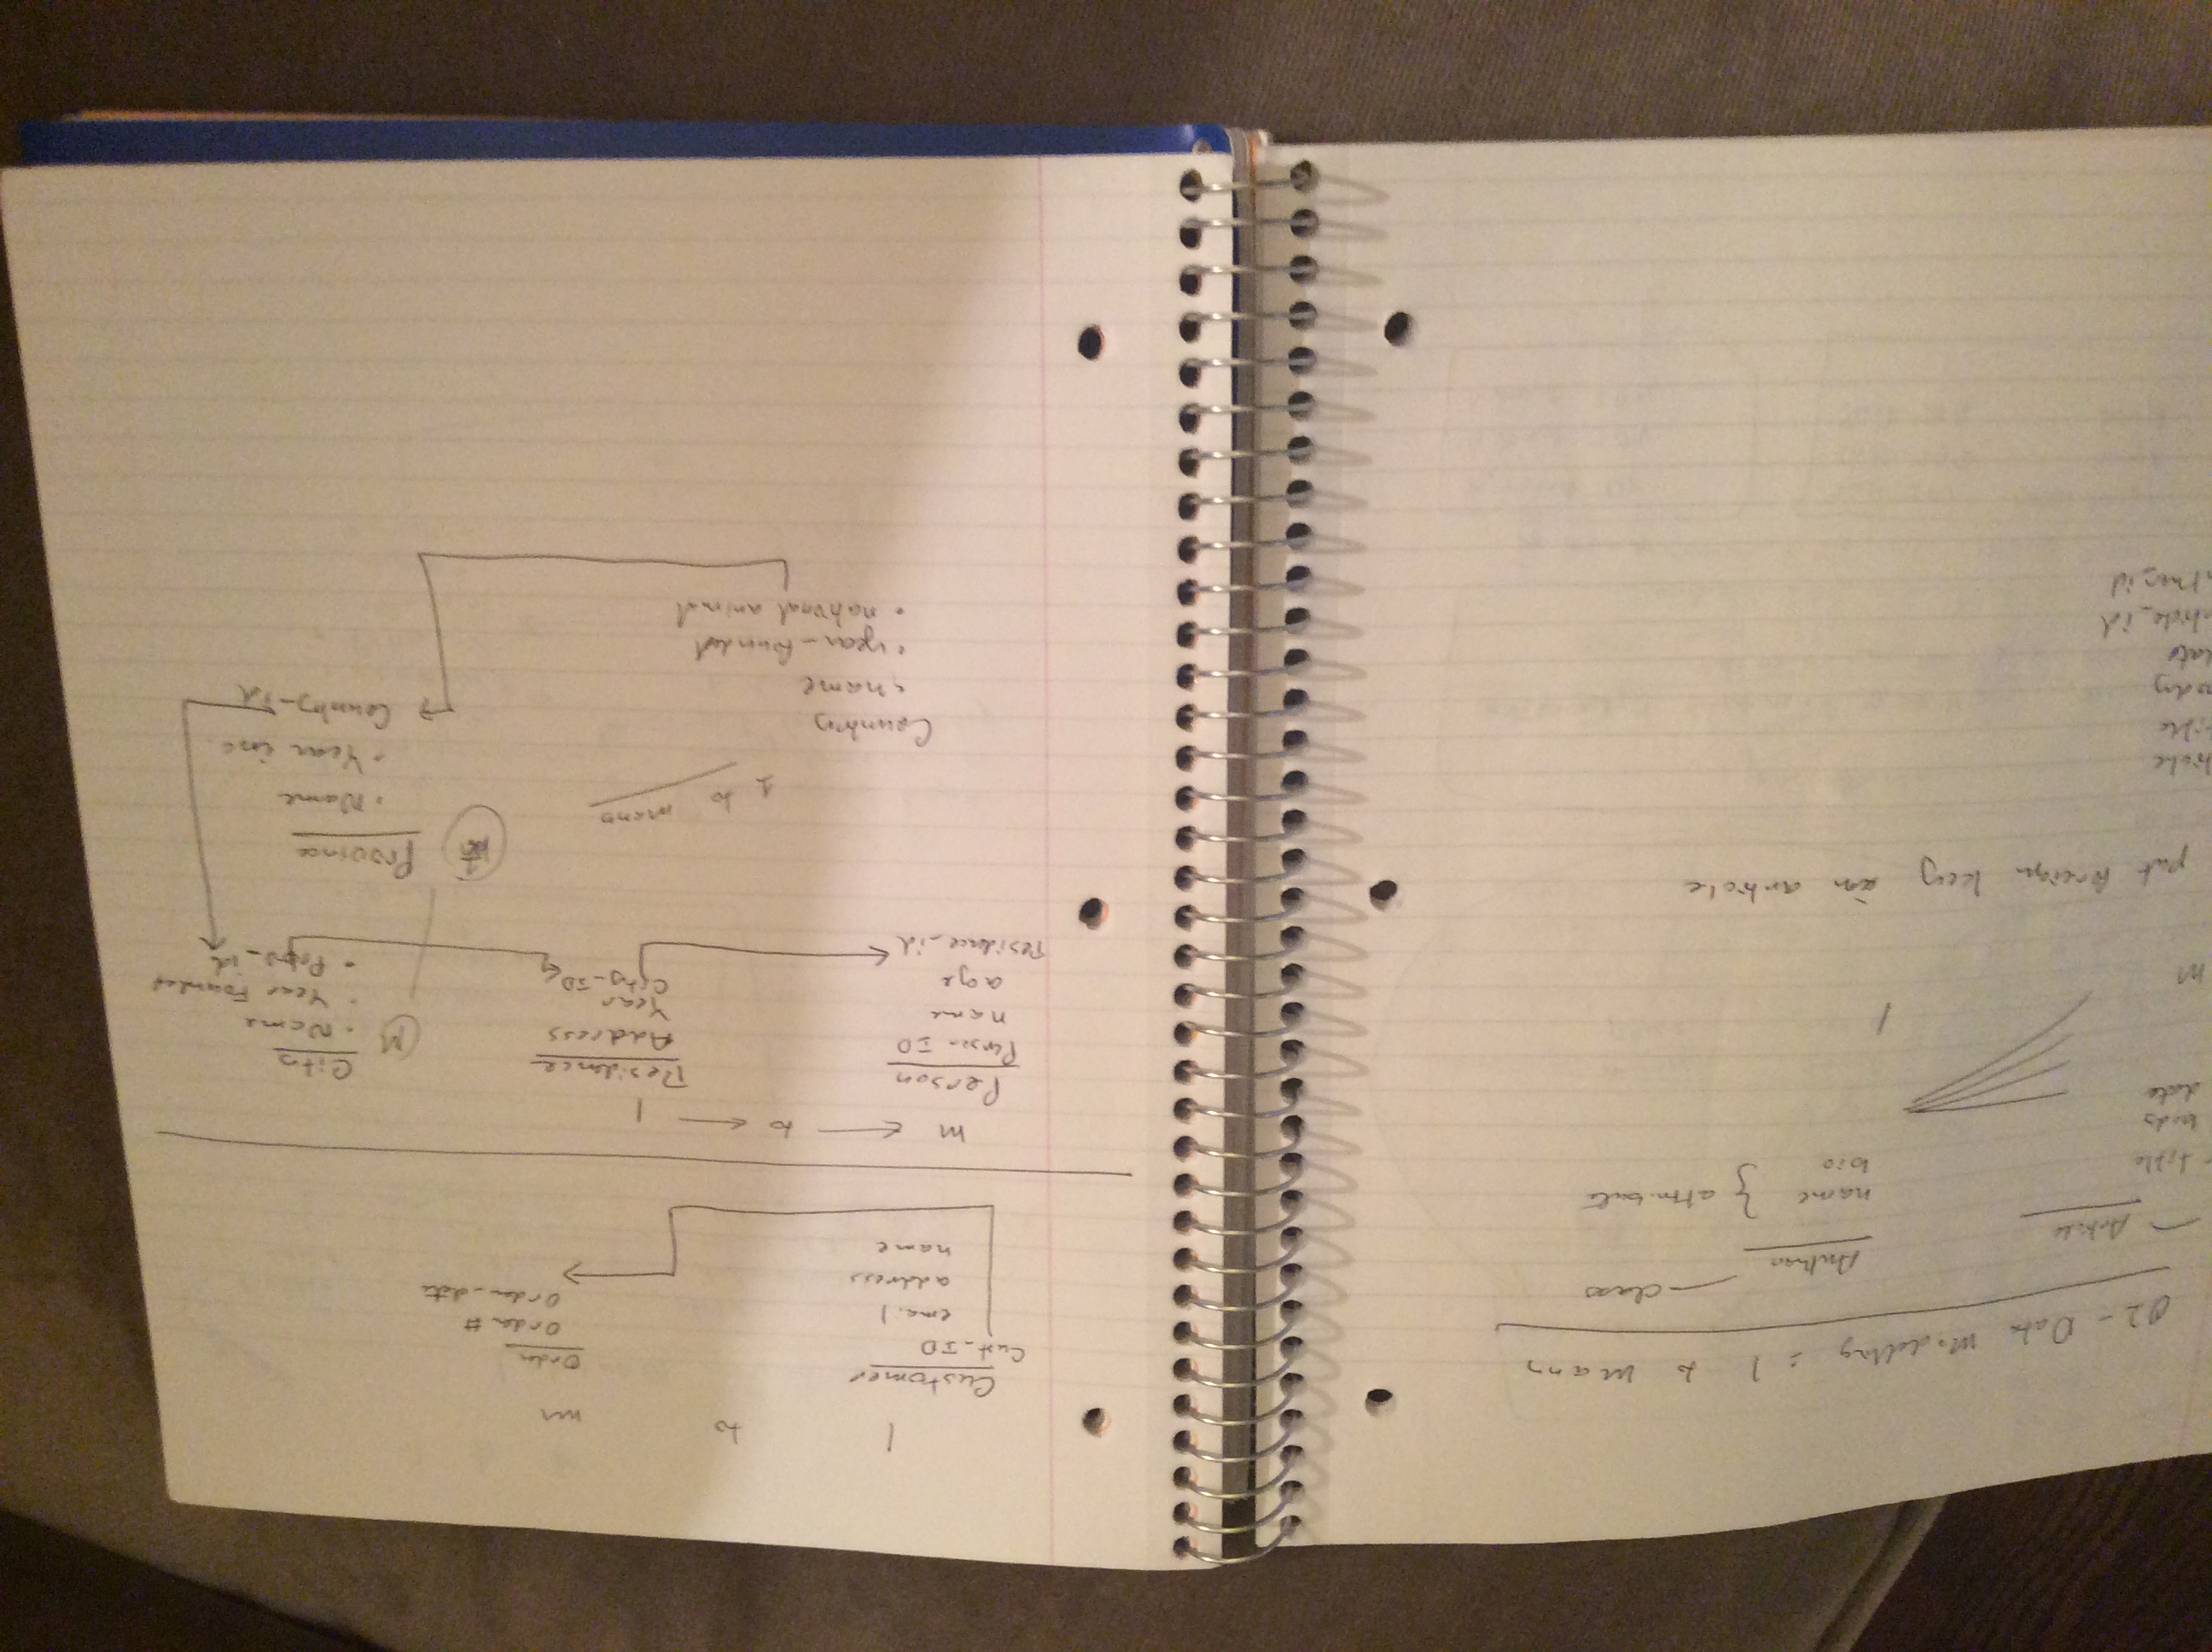 02 - Data Modelling : 1 to Many
class
Author
Article
name } attribute
bio
title
body
date
1
M
put foreign key in article
ticle
title
body
date
article_id
thor_id
1 to m
Customer
Cust_ID
email
address
name
Order
Order #
Order_date
m ← to ← 1
Person
Person ID
name
age
residence_id
Residence
Address
Year
City_ID
City
M
• Name
• Year Founded
1 to many
Province
• Name
• Year inc.
Country_id
Country
• name
• year_founded
• national animal